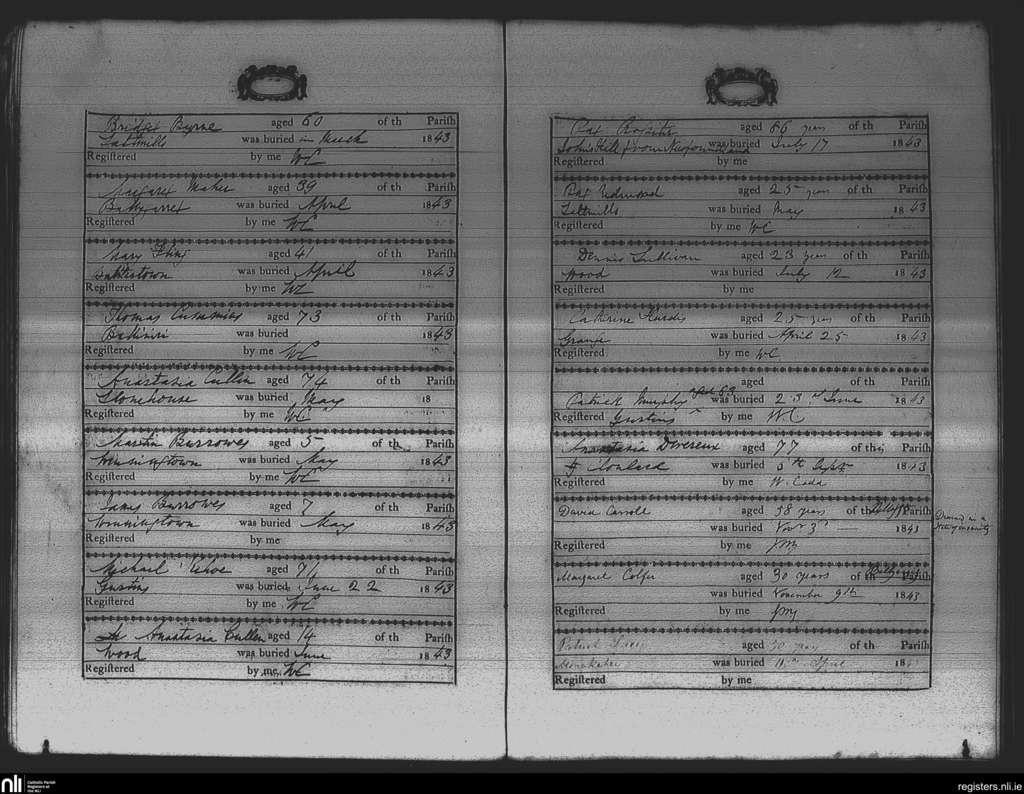 Bridget Byrne aged 60 of th Parish
Saltmills was buried in March 1843
Registered by me WC
Margaret Maher aged 39 of th Parish
Ballygarret was buried April 1843
Registered by me WC
Mary aged 41 of th Parish
was buried April 1843
Registered by me WC
Thomas Cummins aged 73 of th Parish
was buried 1843
Registered by me WC
Anastasia Cullen aged 74 of th Parish
Stonehouse was buried May 18
Registered by me WC
Martin Burrowes aged 5 of th Parish
Winningtown was buried May 1843
Registered by me WC
James Burrowes aged 7 of th Parish
Winningtown was buried May 1843
Registered by me
Michael Kehoe aged 71 of th Parish
Gustins was buried June 22 1843
Registered by me WC
Anastasia Cullen aged 14 of th Parish
Wood was buried June 1843
Registered by me WC
Pat Rositer aged 66 years of th Parish
Johns Hill from Newfoundland was buried July 17 1843
Registered by me
Pat Redmond aged 25 years of th Parish
Saltmills was buried May 1843
Registered by me WC
Dennis Sullivan aged 23 years of th Parish
Wood was buried July 12 1843
Registered by me
Catherine aged 25 years of th Parish
Grange was buried April 25 1843
Registered by me WC
aged of th Parish
Patrick Murphy aged 63 was buried 23rd June 1843
Registered Gustins by me WC
Anastasia Devereux aged 77 of this Parish
was buried 5th Sept 1843
Registered by me W. Codd
David Carroll aged 58 years of th Parish
was buried Novr 3rd 1843
Registered by me
Margaret Colfer aged 30 years of th Parish
was buried November 9th 1843
Registered by me
Patrick aged 30 years of th Parish
was buried April 18
Registered by me
nli
Catholic Parish
Registers at
the NLI
registers.nli.ie